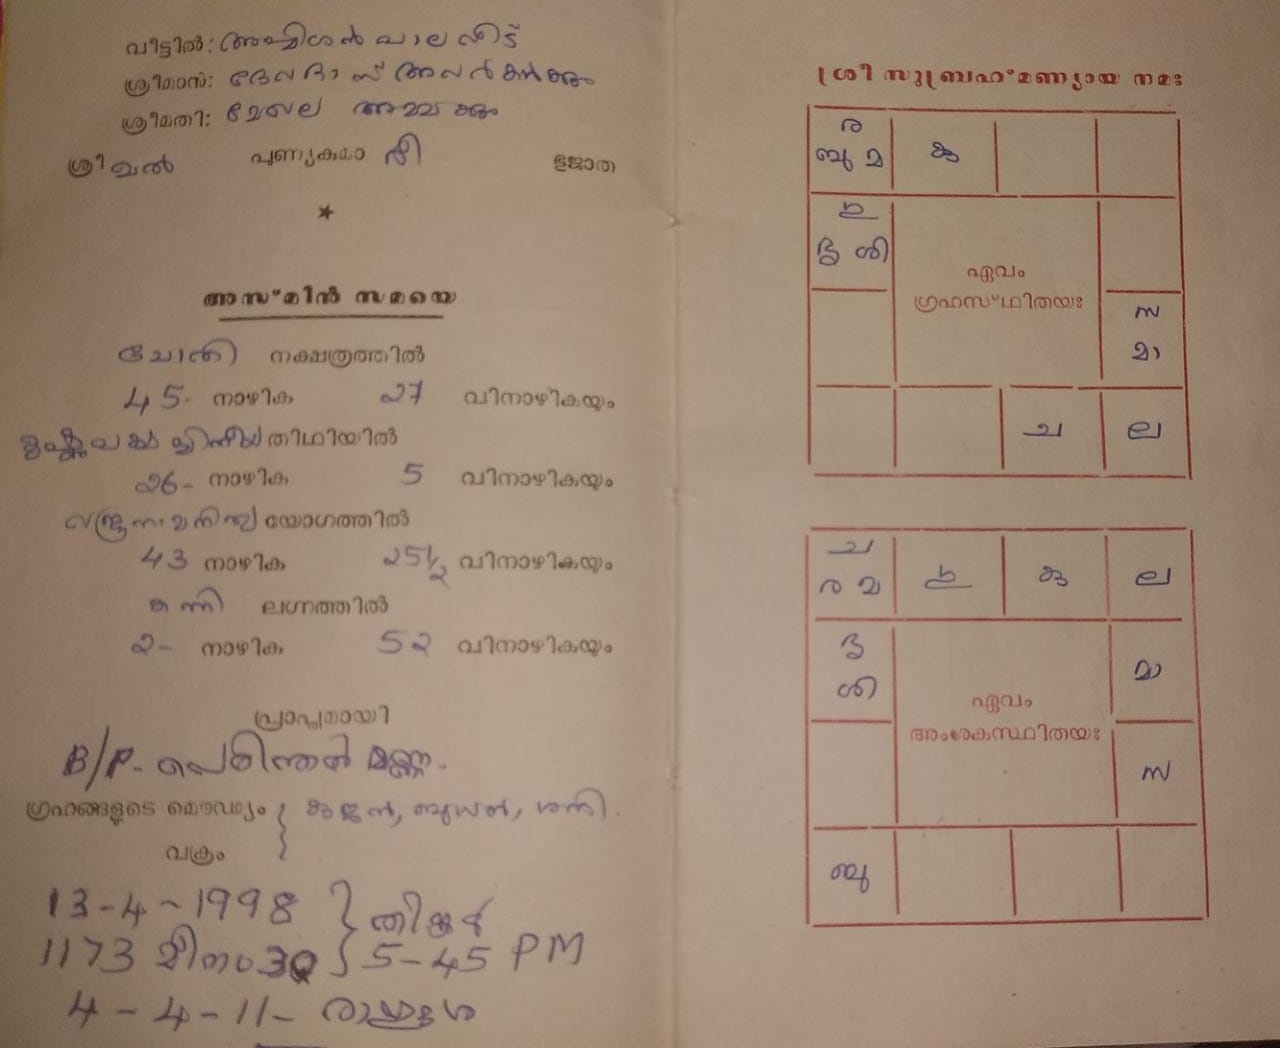 വീട്ടിൽ: അമ്മിശൻ പാല വീട്
ശ്രീമാൻ: ദേവദാസ് അവർകൾക്കും
ശ്രീമതി: മേഖല അമ്മക്കും
ശ്രീവൽ പുണ്യകുമാരീ ളജാത
★
അസ്മിൻ സമയെ
ചോതി നക്ഷത്രത്തിൽ
45- നാഴിക 27 വിനാഴികയും
കൃഷ്ണപക്ഷ ദ്വിതീയ തിഥിയിൽ
26- നാഴിക 5 വിനാഴികയും
വജ്രനാമനിത്യ യോഗത്തിൽ
43 നാഴിക 25½ വിനാഴികയും
കന്നി ലഗ്നത്തിൽ
2- നാഴിക 52 വിനാഴികയും
പ്രാപ്തമായി
B/P. പെരിന്തൽ മണ്ണ.
ഗ്രഹങ്ങളുടെ മൌഢ്യം } കുജൻ, ബുധൻ, ശനി.
വക്രം
13-4-1998 } തിങ്കൾ
1173 മീനം 30 } 5-45 PM
4-4-11- രാഹുദശ
ശ്രീ സുബ്രഹ്മണ്യായ നമഃ
ര
ബു മ കു
ശി
ഏവം
ഗ്രഹസ്ഥിതയഃ
സ
മാ
ച ല
ച
ര മ കു ല
ശി
മാ
ഏവം
അംശകസ്ഥിതയഃ
സ
ബു